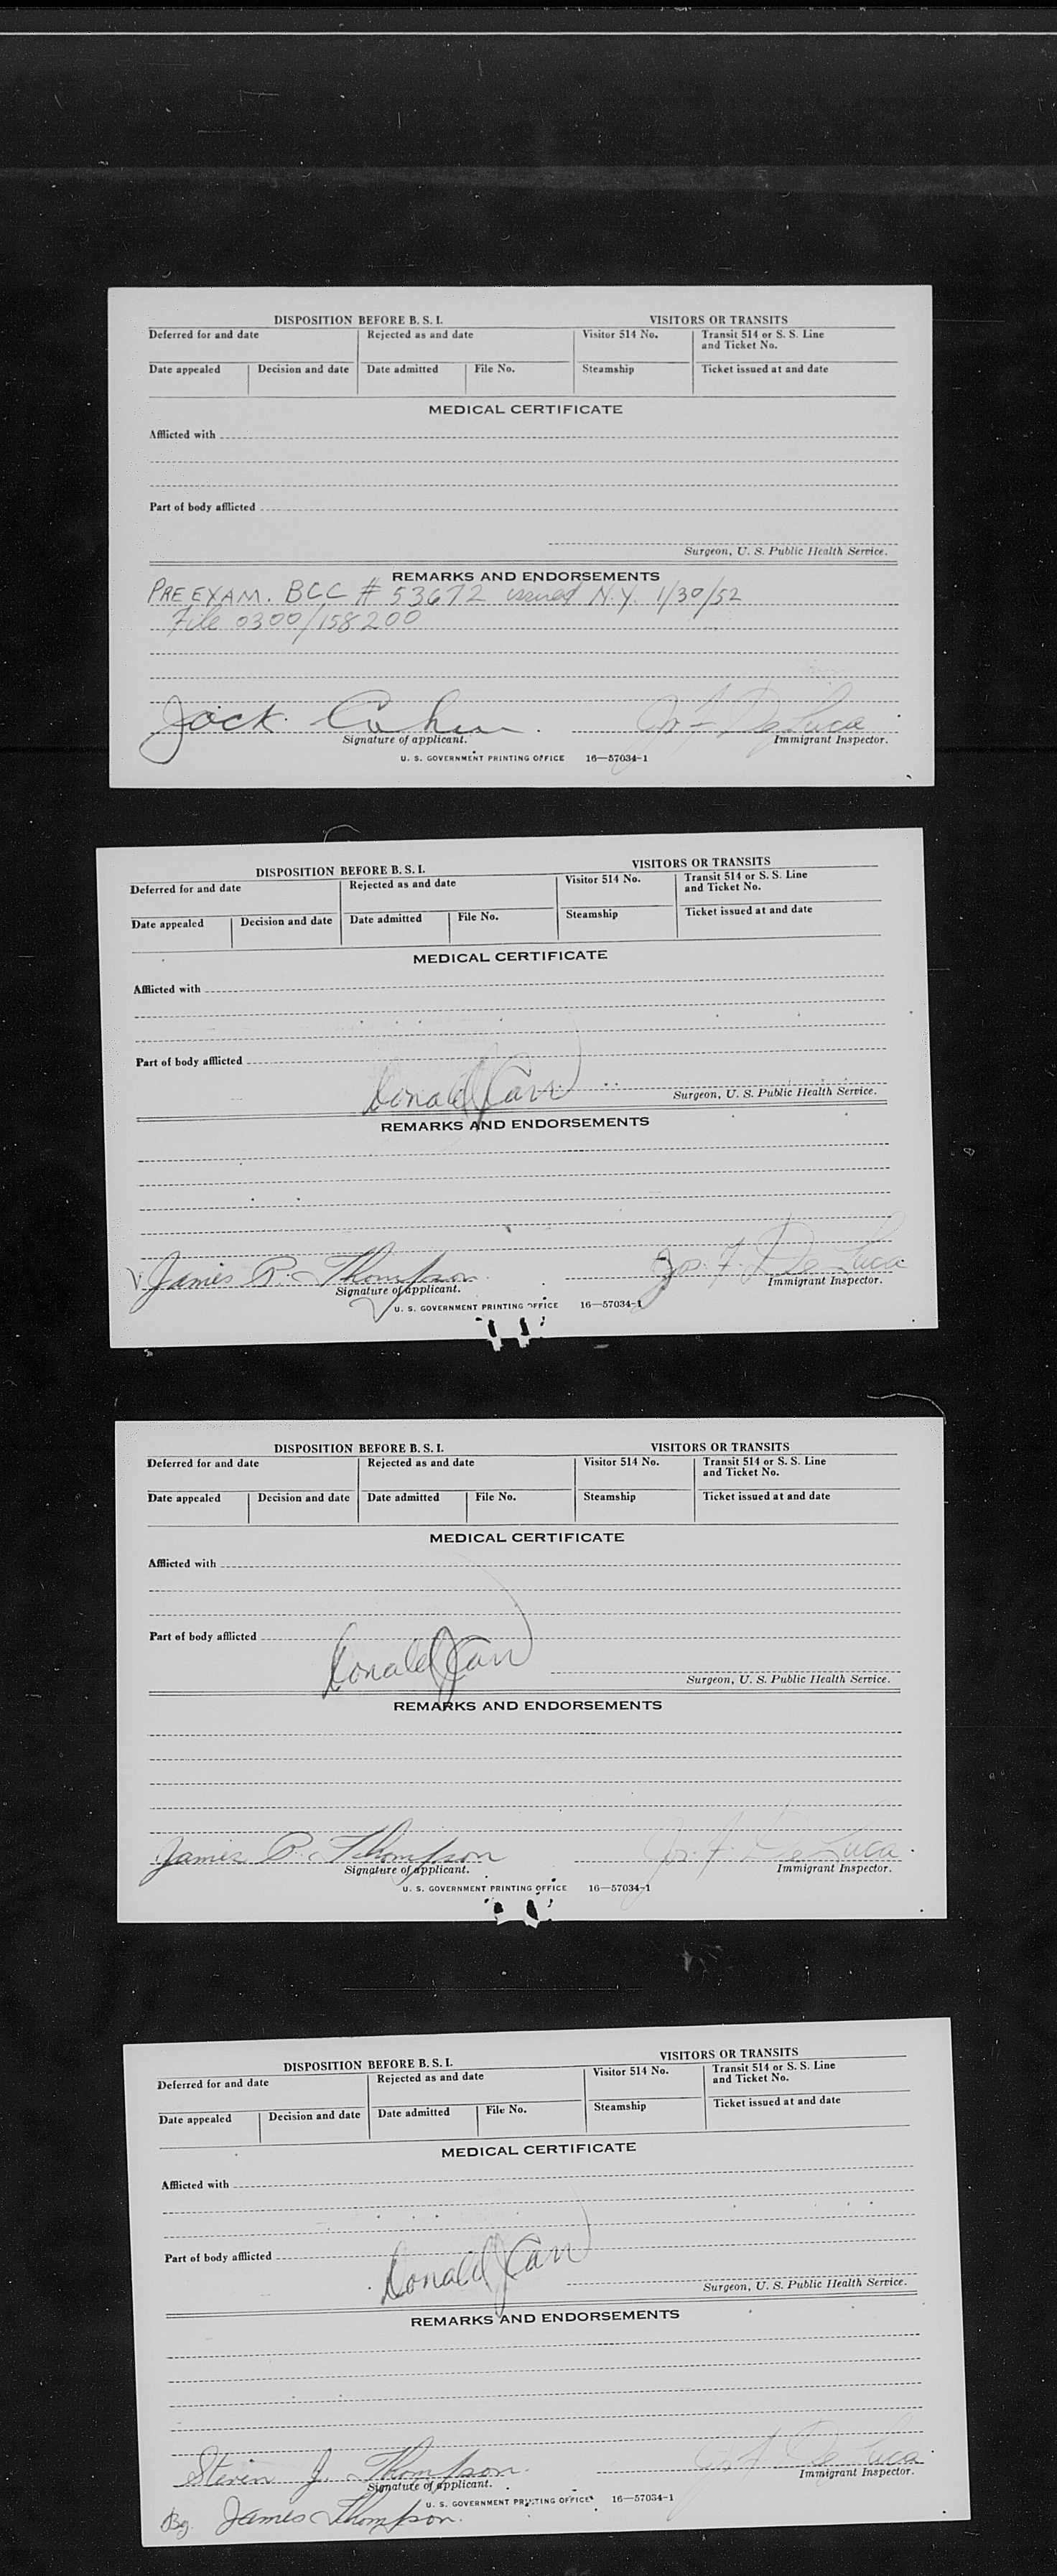 DISPOSITION BEFORE B. S. I. VISITORS OR TRANSITS
Deferred for and date Rejected as and date Visitor 514 No. Transit 514 or S. S. Line and Ticket No.
Date appealed Decision and date Date admitted File No. Steamship Ticket issued at and date
MEDICAL CERTIFICATE
Afflicted with
Part of body afflicted
Surgeon, U. S. Public Health Service.
REMARKS AND ENDORSEMENTS
PRE EXAM. BCC # 53672 issued N.Y. 1/30/52
File 0300/158200
Jack Cohen Jos. F. De Luca
Signature of applicant. Immigrant Inspector.
U. S. GOVERNMENT PRINTING OFFICE 16—57034-1
DISPOSITION BEFORE B. S. I. VISITORS OR TRANSITS
Deferred for and date Rejected as and date Visitor 514 No. Transit 514 or S. S. Line and Ticket No.
Date appealed Decision and date Date admitted File No. Steamship Ticket issued at and date
MEDICAL CERTIFICATE
Afflicted with
Part of body afflicted
Donald Carr
Surgeon, U. S. Public Health Service.
REMARKS AND ENDORSEMENTS
James P. Thompson Jos. F. De Luca
Signature of applicant. Immigrant Inspector.
U. S. GOVERNMENT PRINTING OFFICE 16—57034-1
DISPOSITION BEFORE B. S. I. VISITORS OR TRANSITS
Deferred for and date Rejected as and date Visitor 514 No. Transit 514 or S. S. Line and Ticket No.
Date appealed Decision and date Date admitted File No. Steamship Ticket issued at and date
MEDICAL CERTIFICATE
Afflicted with
Part of body afflicted
Donald Carr
Surgeon, U. S. Public Health Service.
REMARKS AND ENDORSEMENTS
James P. Thompson Jos. F. De Luca
Signature of applicant. Immigrant Inspector.
U. S. GOVERNMENT PRINTING OFFICE 16—57034-1
DISPOSITION BEFORE B. S. I. VISITORS OR TRANSITS
Deferred for and date Rejected as and date Visitor 514 No. Transit 514 or S. S. Line and Ticket No.
Date appealed Decision and date Date admitted File No. Steamship Ticket issued at and date
MEDICAL CERTIFICATE
Afflicted with
Part of body afflicted
Donald Carr
Surgeon, U. S. Public Health Service.
REMARKS AND ENDORSEMENTS
Steven J. Thompson Jos. F. De Luca
Signature of applicant. Immigrant Inspector.
U. S. GOVERNMENT PRINTING OFFICE 16—57034-1
By. James Thompson.